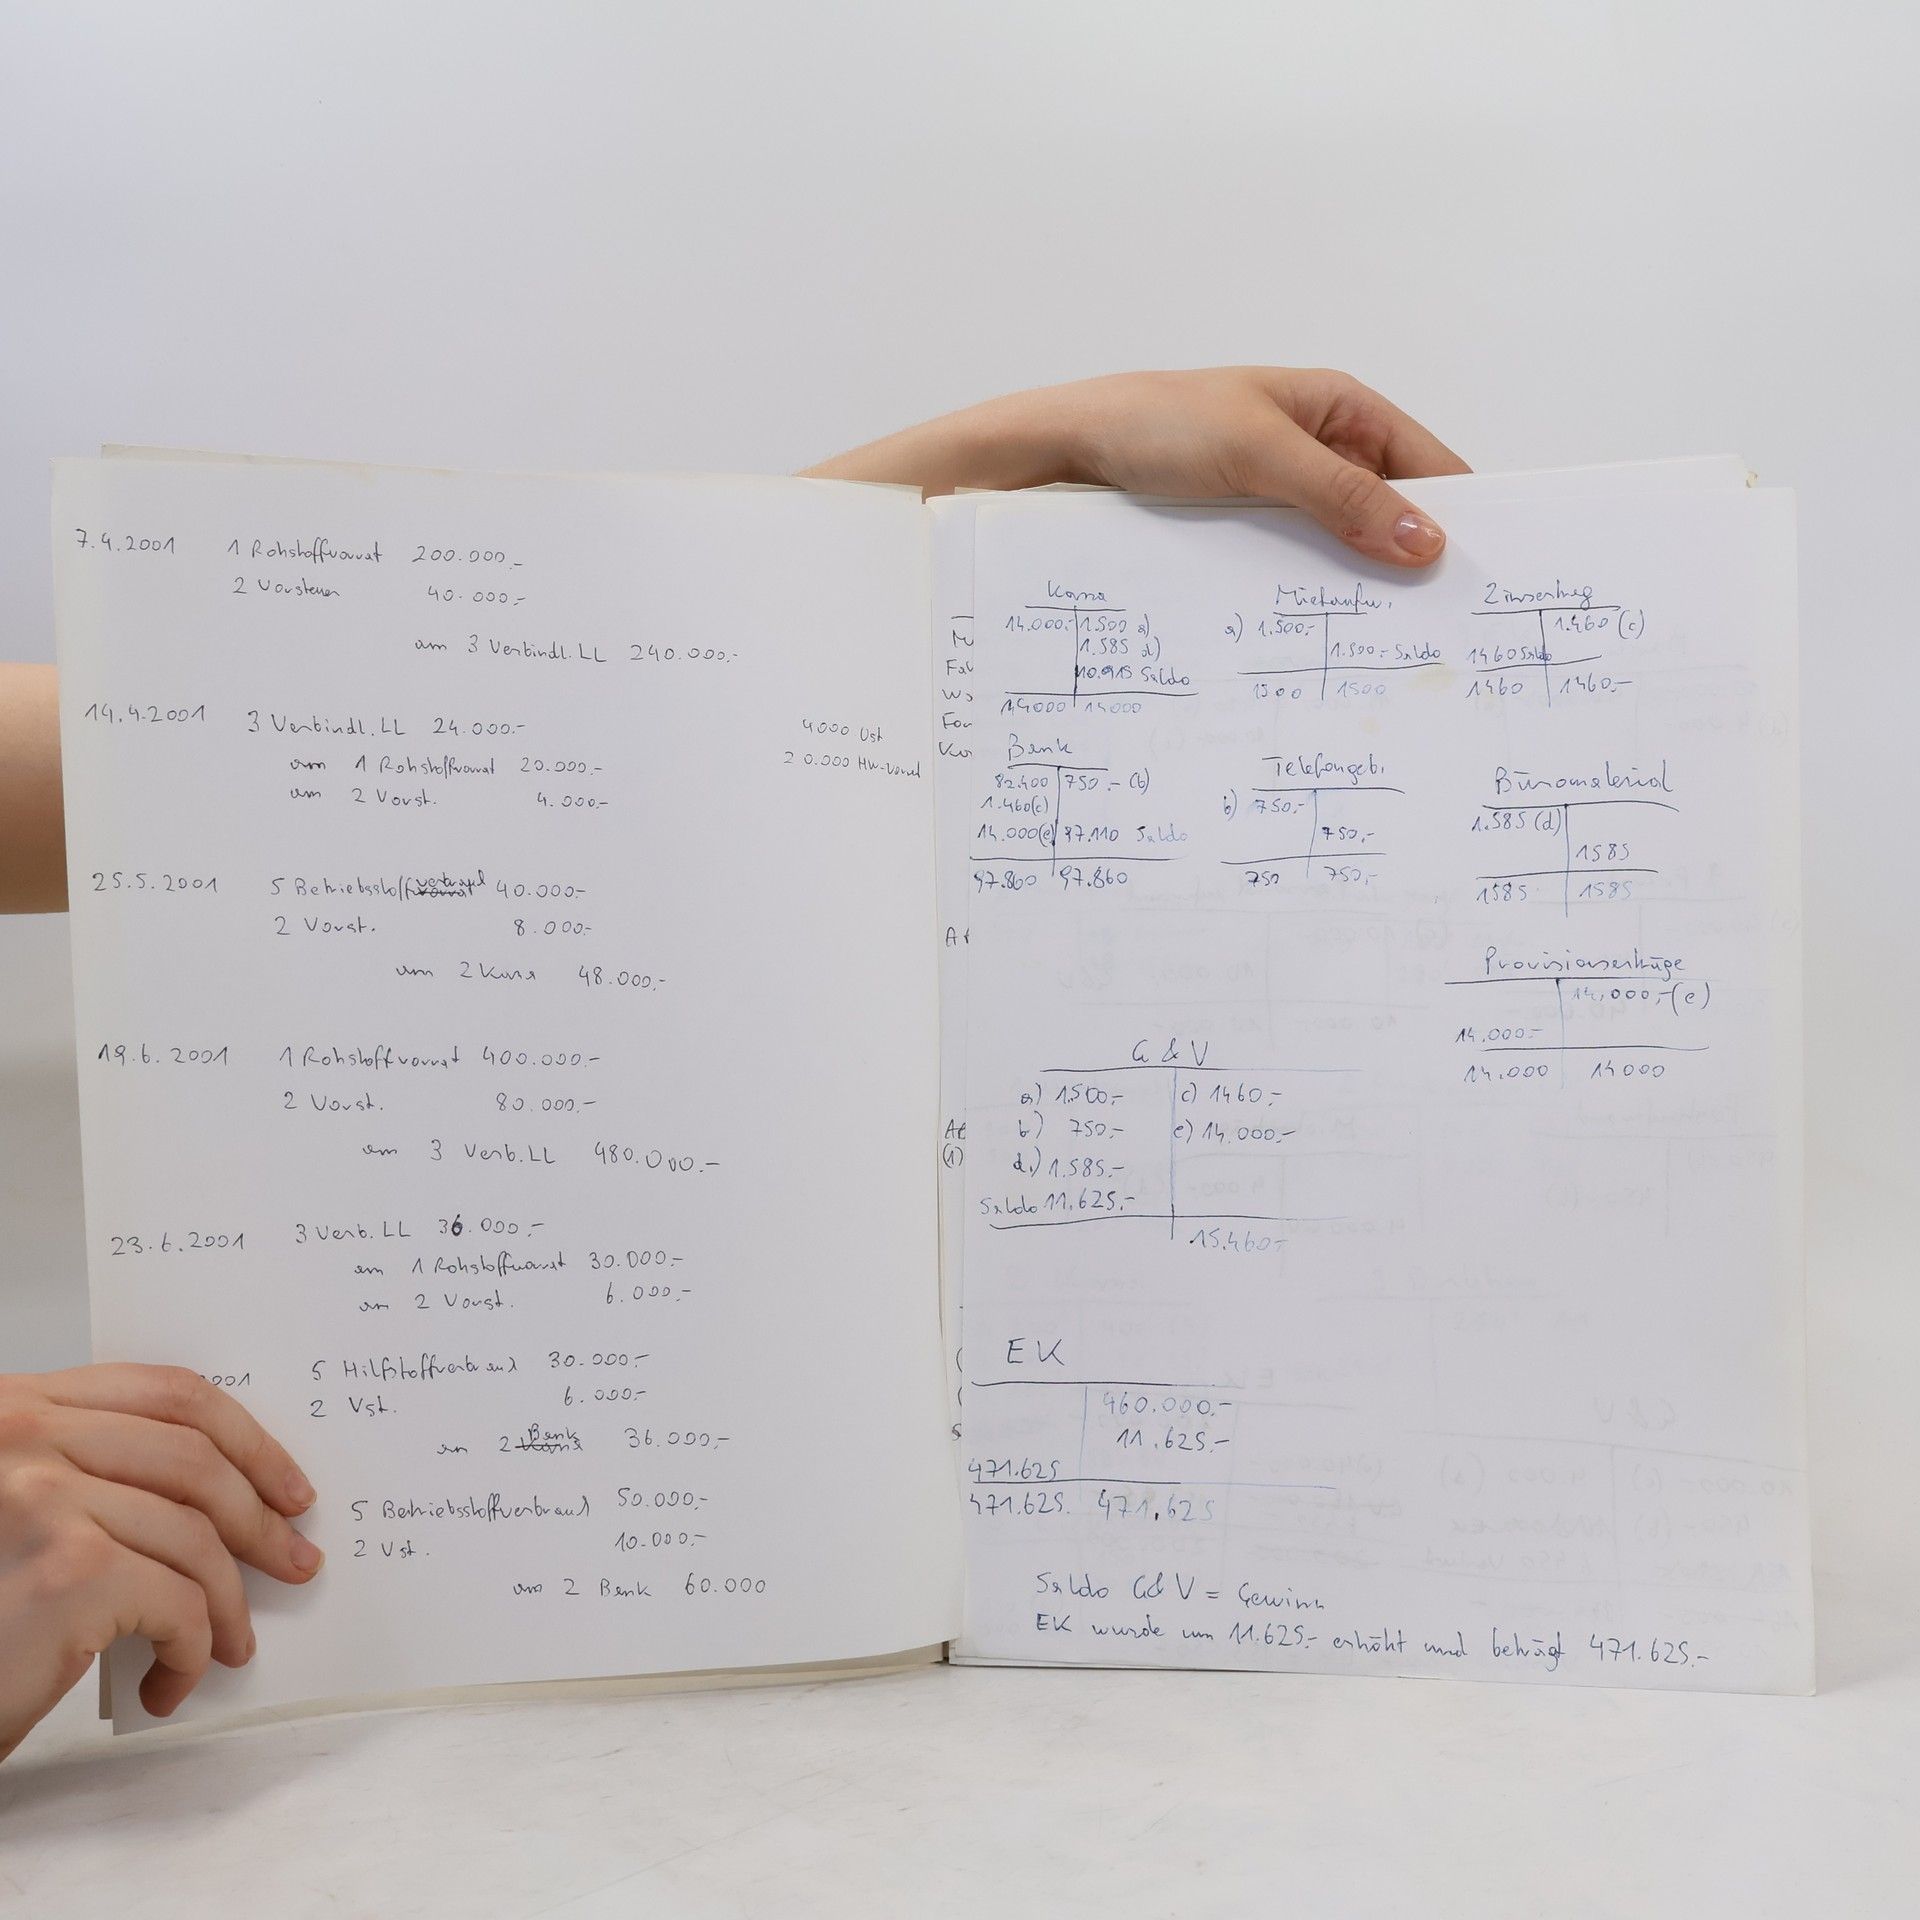 7.4.2001 1 Rohstoffvorrat 200.000.-
2 Vorsteuer 40.000,-
an 3 Verbindl. LL 240.000.-
14.4.2001 3 Verbindl. LL 24.000.-
an 1 Rohstoffvorrat 20.000.-
an 2 Vorst. 4.000.-
4000 Ust
20.000 HW-Vorrat
25.5.2001 5 Betriebsstoffverbrauch 40.000.-
2 Vorst. 8.000.-
an 2 Kassa 48.000.-
19.6.2001 1 Rohstoffvorrat 400.000.-
2 Vorst. 80.000.-
an 3 Verb. LL 480.000.-
23.6.2001 3 Verb. LL 36.000.-
an 1 Rohstoffvorrat 30.000.-
an 2 Vorst. 6.000.-
001 5 Hilfstoffverbrauch 30.000.-
2 Vst. 6.000.-
an 2 Bank 36.000.-
5 Betriebsstoffverbrauch 50.000.-
2 Vst. 10.000.-
an 2 Bank 60.000
Kassa
14.000.- 1.500 a)
1.585 d)
10.915 Saldo
14000 14000
Mietaufw.
a) 1.500.-
1.500.- Saldo
1500 1500
Zinsertrag
1.460 (c)
1460 Saldo
1460 1460.-
Bank
82.400 750.- (b)
1.460(c)
14.000(e) 97.110 Saldo
97.860 97.860
Telefongeb.
b) 750.-
750.-
750 750.-
Büromaterial
1.585 (d)
1585
1585 1585
Provisionserträge
14.000,- (e)
14.000.-
14.000 14000
G & V
a) 1.500.- c) 1460.-
b) 750.- e) 14.000.-
d.) 1.585.-
Saldo 11.625.-
15.460.-
EK
460.000.-
11.625.-
471.625
471.625. 471.625
Saldo G&V = Gewinn
EK wurde um 11.625.- erhöht und beträgt 471.625.-